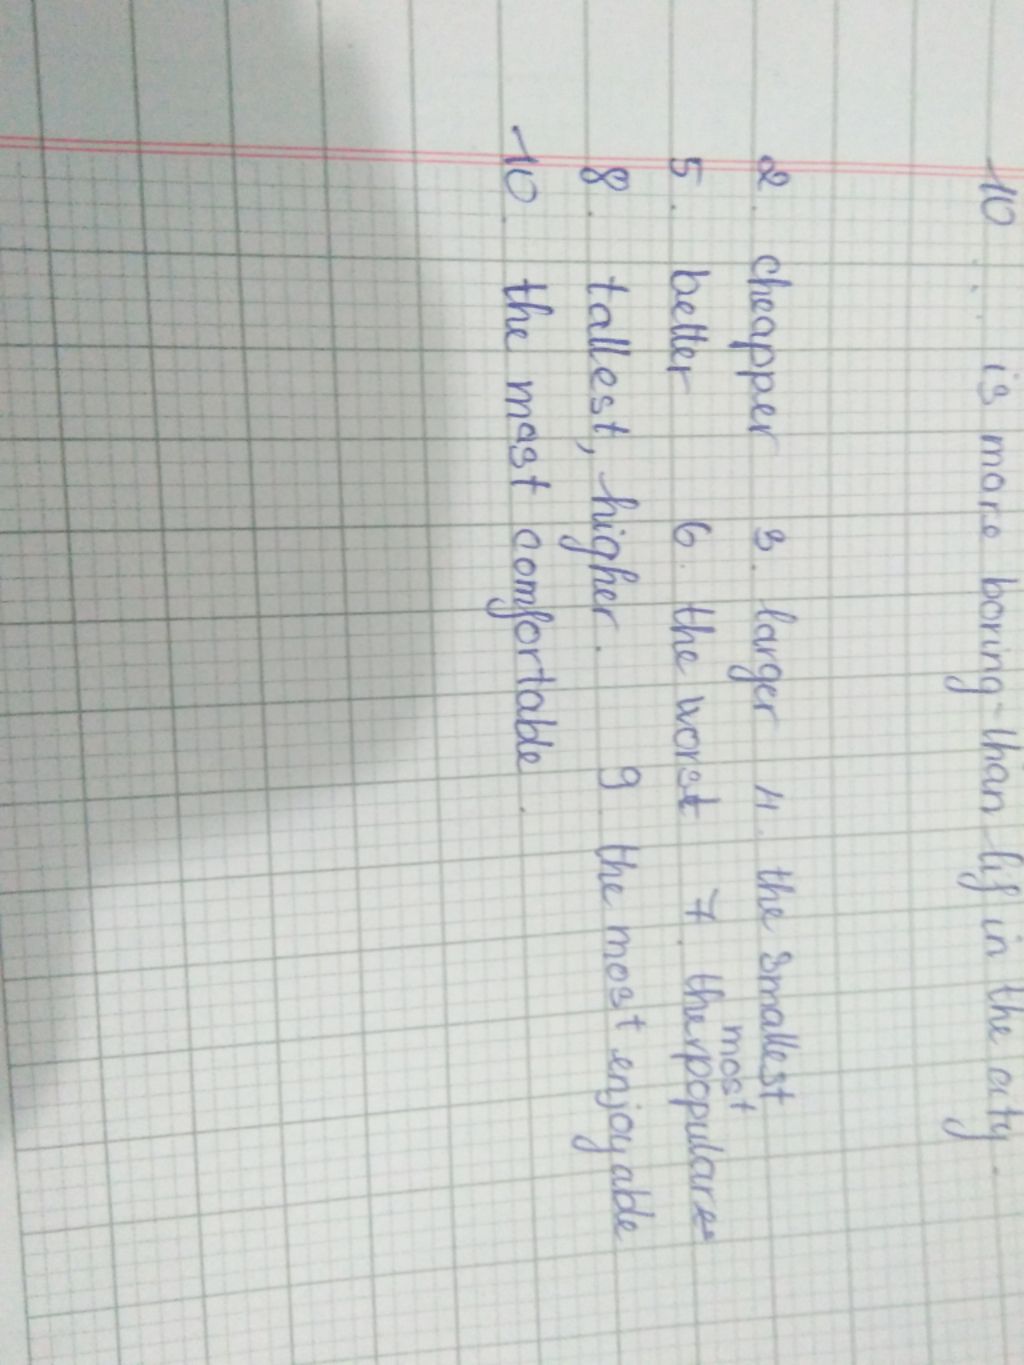 10. .. is more boring than lif in the city.
2. cheapper 3. larger 4. the smallest
5. better 6. the worst 7. the most popular
8. tallest, higher. 9 the most enjoyable
10. the mast comfortable.